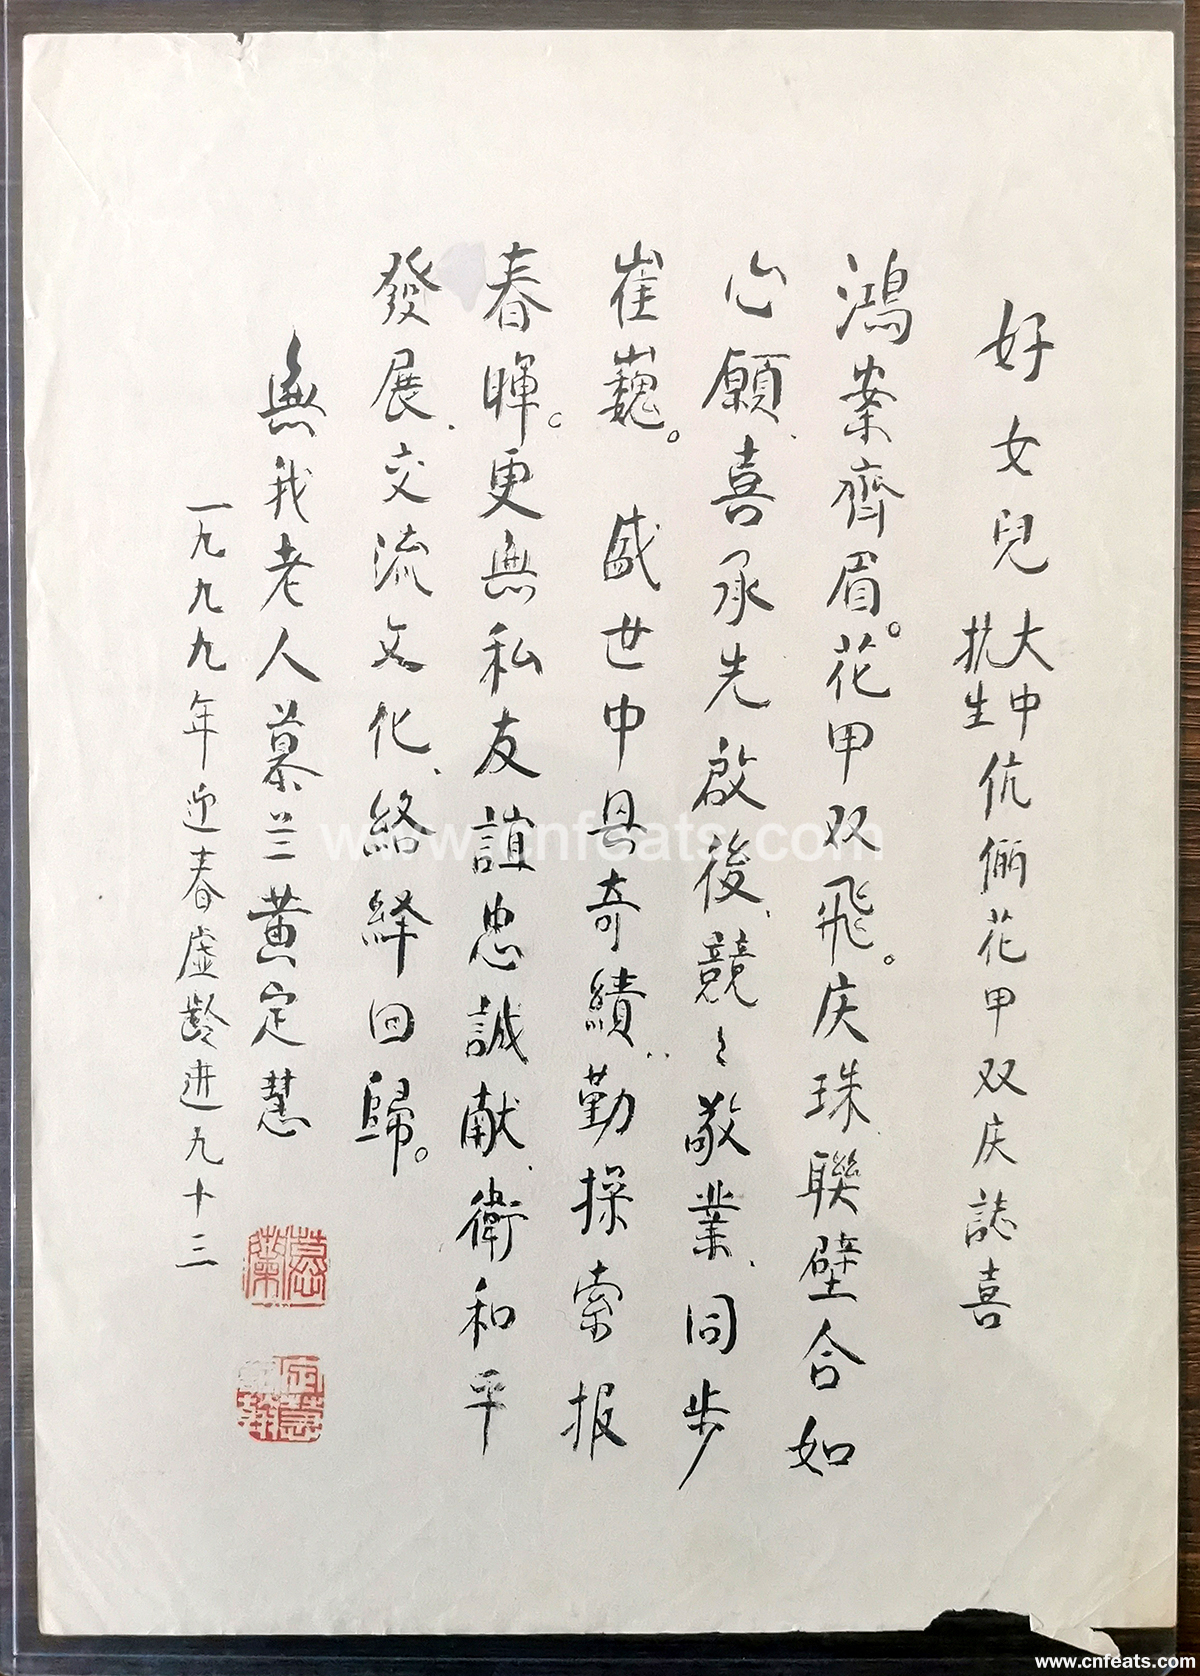 好女兒大中抗生伉俪花甲双庆誌喜
鴻案齊眉。花甲双飛。庆珠聯璧合如
心願、喜承先啟後、競々敬業、同步
崔巍。 盛世中具奇績、勤操索报
春暉。更無私友誼忠誠献、衛和平
發展、交流文化、絡繹回歸。
無我老人慕兰黄定慧
一九九九年迎春虚齡进九十三
www.cnfeats.com
www.cnfeats.com